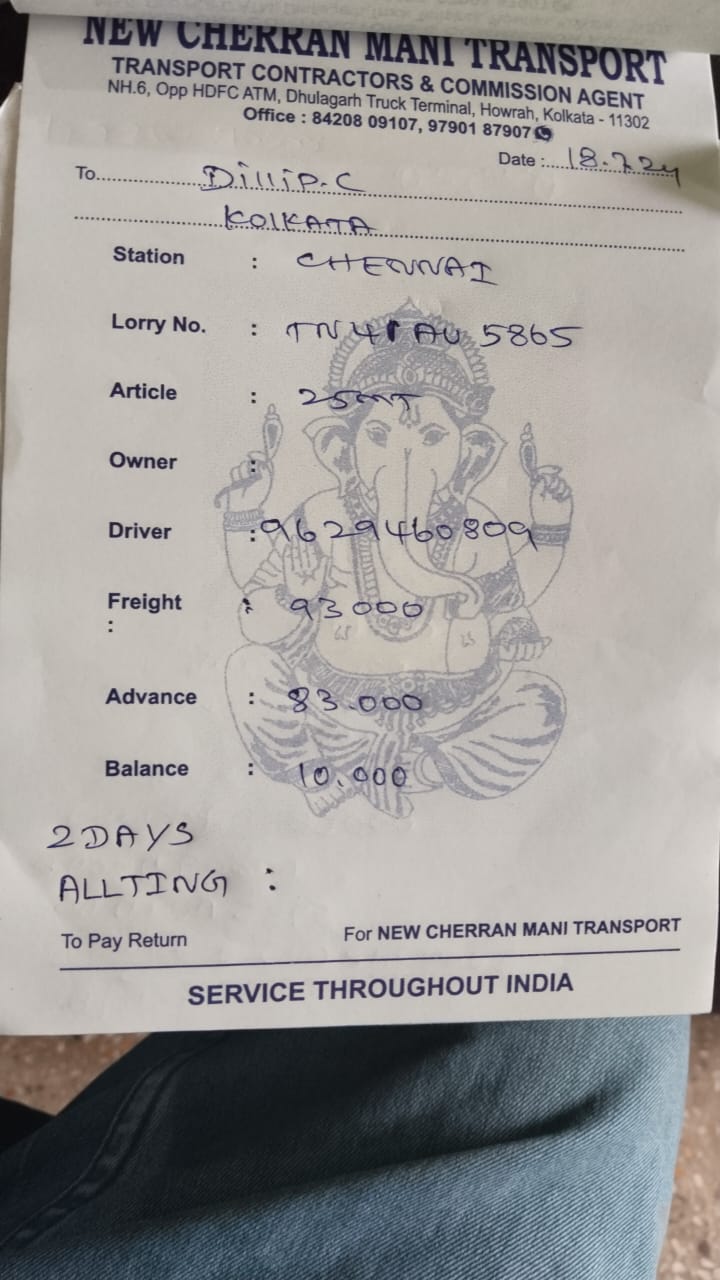 NEW CHERRAN MANI TRANSPORT
TRANSPORT CONTRACTORS & COMMISSION AGENT
NH.6, Opp HDFC ATM, Dhulagarh Truck Terminal, Howrah, Kolkata - 11302
Office : 84208 09107, 97901 87907
Date :....18.7.24
To....Dillip.C
KOLKATA
Station : CHENNAI
Lorry No. : TN41 AU 5865
Article : 25MT
Owner :
Driver : 9629460809
Freight : 93000
:
Advance : 83.000
Balance : 10.000
2 DAYS
ALLTING :
To Pay Return For NEW CHERRAN MANI TRANSPORT
SERVICE THROUGHOUT INDIA